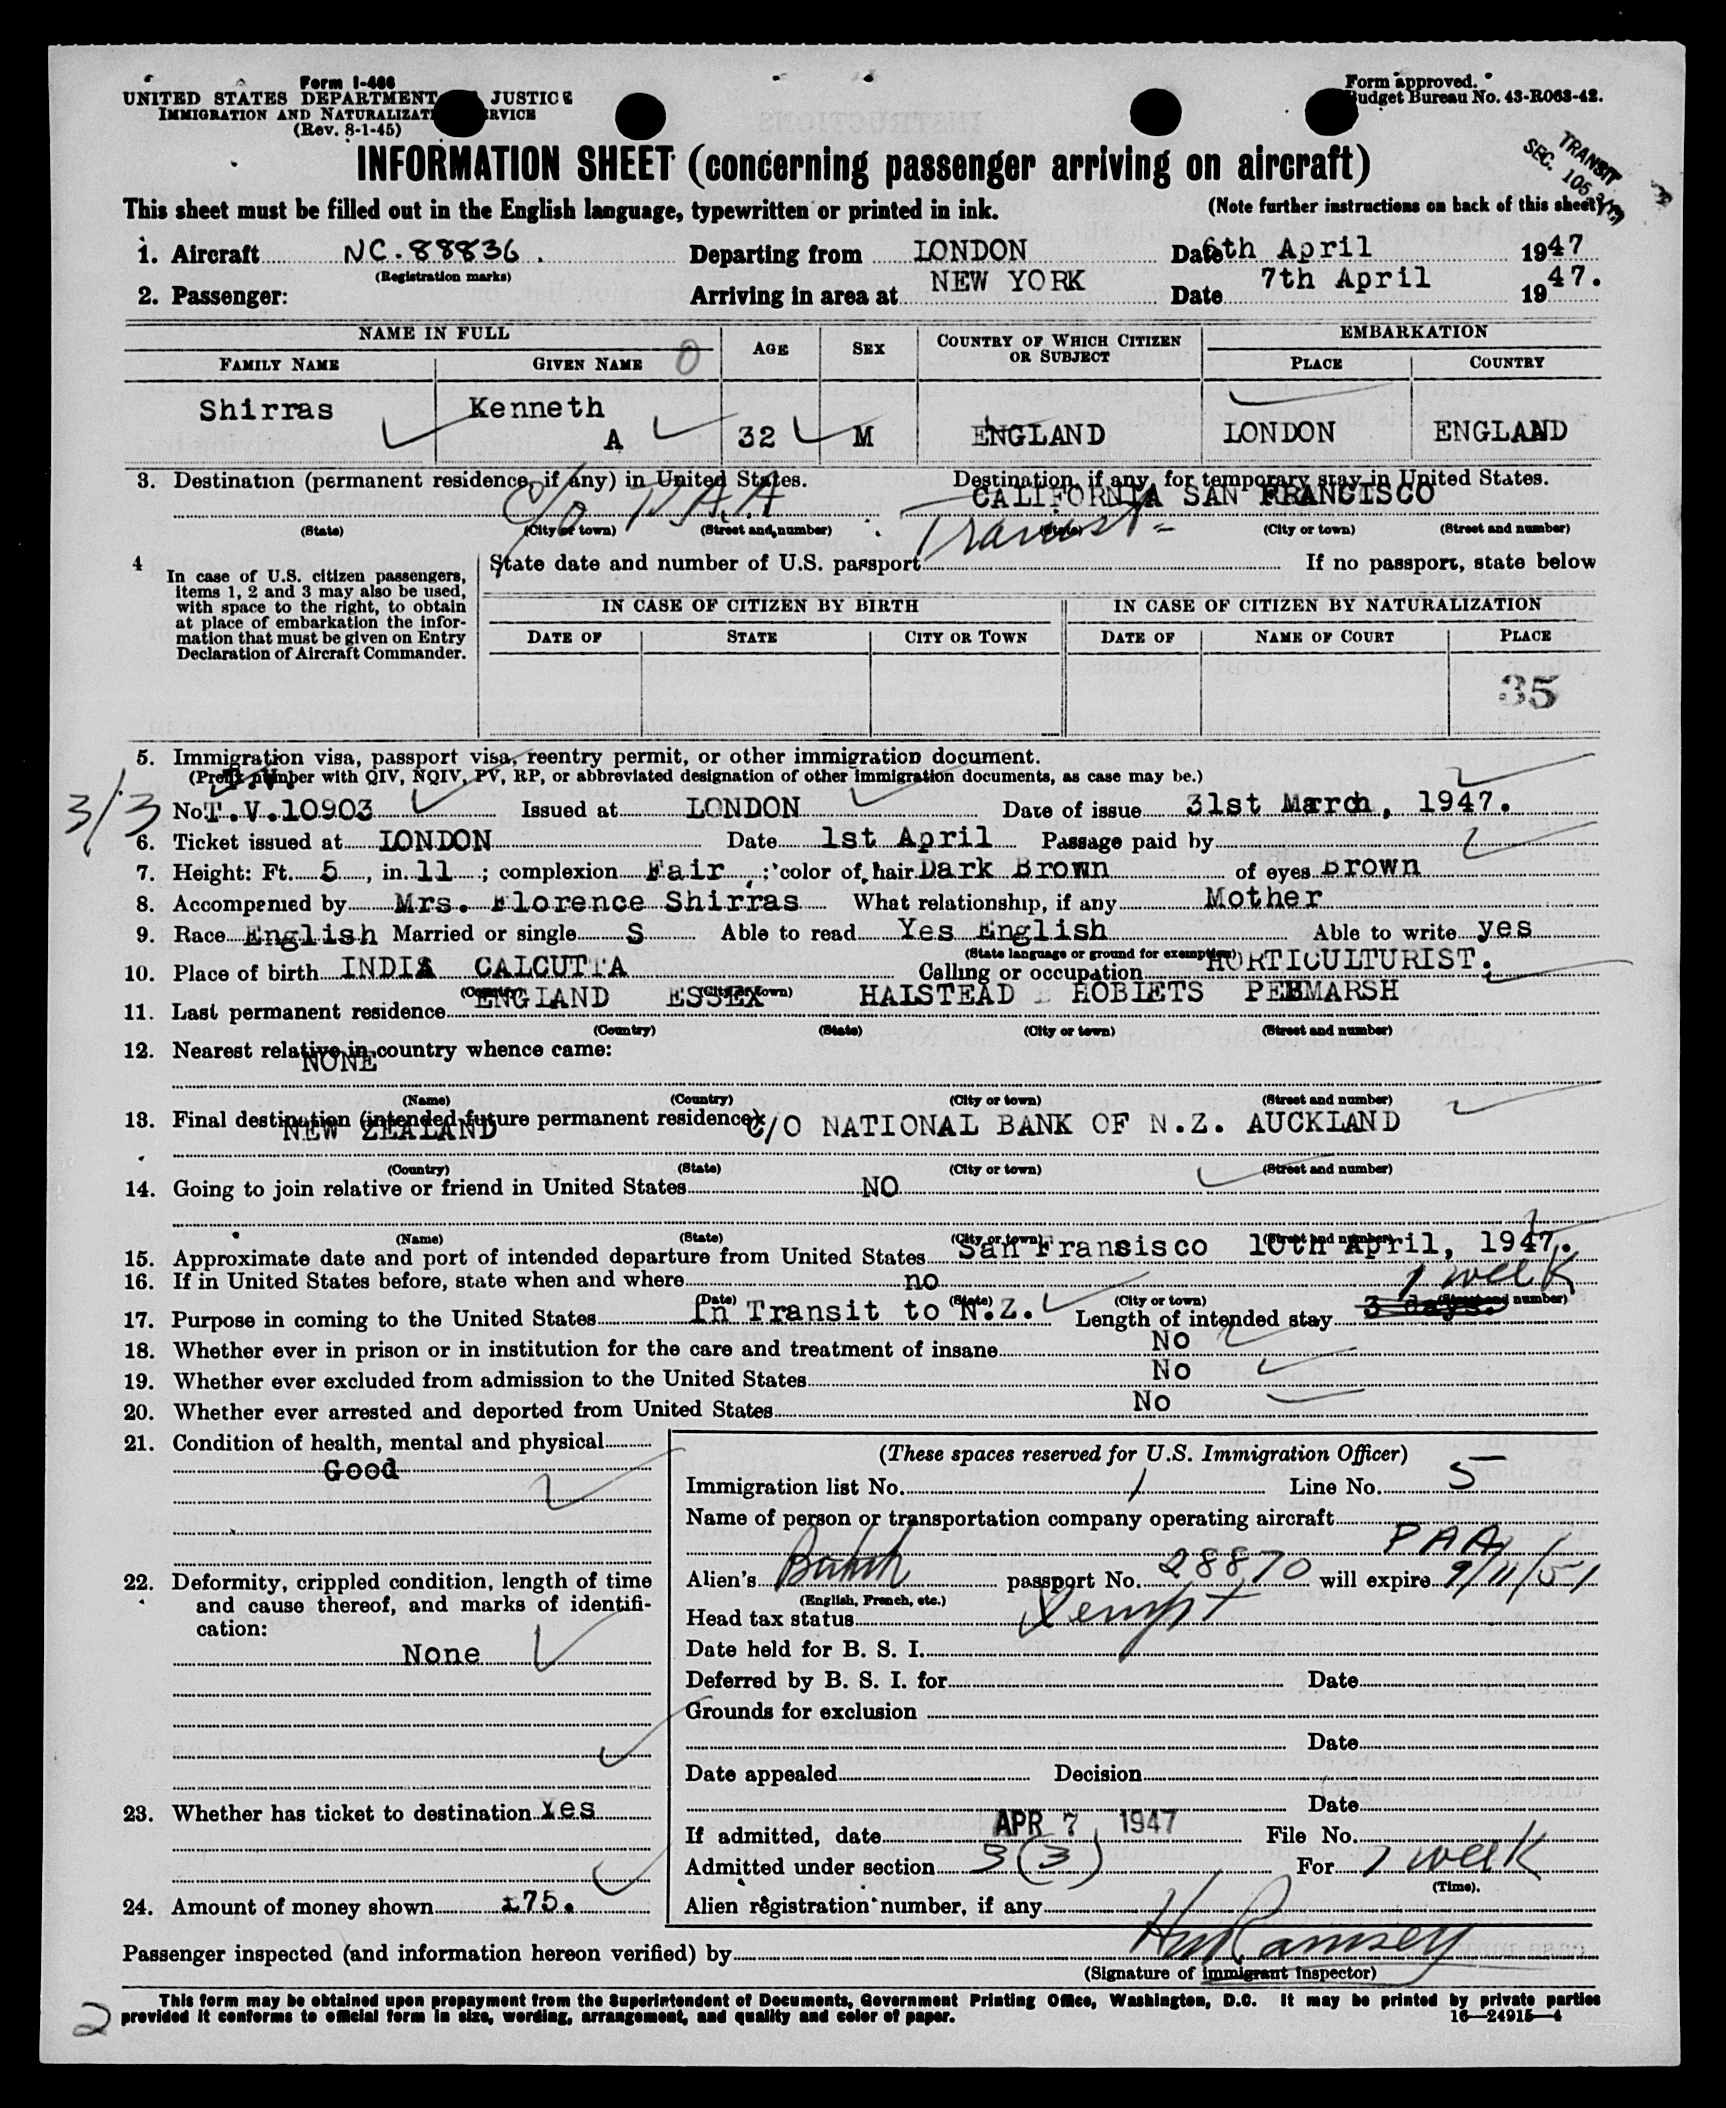 Form I-466
UNITED STATES DEPARTMENT JUSTICE
IMMIGRATION AND NATURALIZAT RVICE
(Rev. 8-1-45)
Form approved.
Budget Bureau No. 43-R063-42.
TRANSIT
SEC. 105.3(3)
INFORMATION SHEET (concerning passenger arriving on aircraft)
This sheet must be filled out in the English language, typewritten or printed in ink. (Note further instructions on back of this sheet)
1. Aircraft NC.88836. Departing from LONDON Date 6th April 1947
(Registration marks)
2. Passenger: Arriving in area at NEW YORK Date 7th April 1947.
NAME IN FULL AGE SEX COUNTRY OF WHICH CITIZEN OR SUBJECT EMBARKATION
FAMILY NAME GIVEN NAME 0 PLACE COUNTRY
Shirras Kenneth A 32 M ENGLAND LONDON ENGLAND
3. Destination (permanent residence, if any) in United States. Destination, if any, for temporary stay in United States.
c/o P.A.A CALIFORNIA SAN FRANCISCO
(State) (City or town) (Street and number) (State) (City or town) (Street and number)
Transit
4 In case of U.S. citizen passengers, items 1, 2 and 3 may also be used, with space to the right, to obtain at place of embarkation the information that must be given on Entry Declaration of Aircraft Commander.
State date and number of U.S. passport If no passport, state below
IN CASE OF CITIZEN BY BIRTH IN CASE OF CITIZEN BY NATURALIZATION
DATE OF STATE CITY OR TOWN DATE OF NAME OF COURT PLACE
35
5. Immigration visa, passport visa, reentry permit, or other immigration document.
(Prefix number with QIV, NQIV, PV, RP, or abbreviated designation of other immigration documents, as case may be.)
3/3 No. T.V.10903 Issued at LONDON Date of issue 31st March, 1947.
6. Ticket issued at LONDON Date 1st April Passage paid by
7. Height: Ft. 5, in. 11; complexion Fair; color of hair Dark Brown of eyes Brown
8. Accompanied by Mrs. Florence Shirras What relationship, if any Mother
9. Race English Married or single S Able to read Yes English Able to write yes
(State language or ground for exemption)
10. Place of birth INDIA CALCUTTA Calling or occupation HORTICULTURIST.
(Country) (City or town)
11. Last permanent residence ENGLAND ESSEX HALSTEAD HOBLETS PEBMARSH
(Country) (State) (City or town) (Street and number)
12. Nearest relative in country whence came:
NONE
(Name) (Country) (City or town) (Street and number)
13. Final destination (intended future permanent residence)
NEW ZEALAND C/O NATIONAL BANK OF N.Z. AUCKLAND
(Country) (State) (City or town) (Street and number)
14. Going to join relative or friend in United States NO
(Name) (State) (City or town) (Street and number)
15. Approximate date and port of intended departure from United States San Fransisco 10th April, 1947.
16. If in United States before, state when and where no
(Date) (State) (City or town) (Street and number)
1 week
17. Purpose in coming to the United States In Transit to N.Z. Length of intended stay 3 days.
18. Whether ever in prison or in institution for the care and treatment of insane No
19. Whether ever excluded from admission to the United States No
20. Whether ever arrested and deported from United States No
21. Condition of health, mental and physical
Good
22. Deformity, crippled condition, length of time and cause thereof, and marks of identification:
None
23. Whether has ticket to destination Yes
24. Amount of money shown £75.
(These spaces reserved for U.S. Immigration Officer)
Immigration list No. 1 Line No. 5
Name of person or transportation company operating aircraft
PAA
Alien's British passport No. 28870 will expire 9/11/51
(English, French, etc.)
Head tax status Xempt
Date held for B. S. I.
Deferred by B. S. I. for Date
Grounds for exclusion
Date
Date appealed Decision
Date
If admitted, date APR 7 1947 File No.
Admitted under section 3(3) For 1 week
(Time).
Alien registration number, if any
Passenger inspected (and information hereon verified) by Ramsey
(Signature of immigrant inspector)
2
This form may be obtained upon prepayment from the Superintendent of Documents, Government Printing Office, Washington, D.C. It may be printed by private parties
provided it conforms to official form in size, wording, arrangement, and quality and color of paper. 16—24915-4